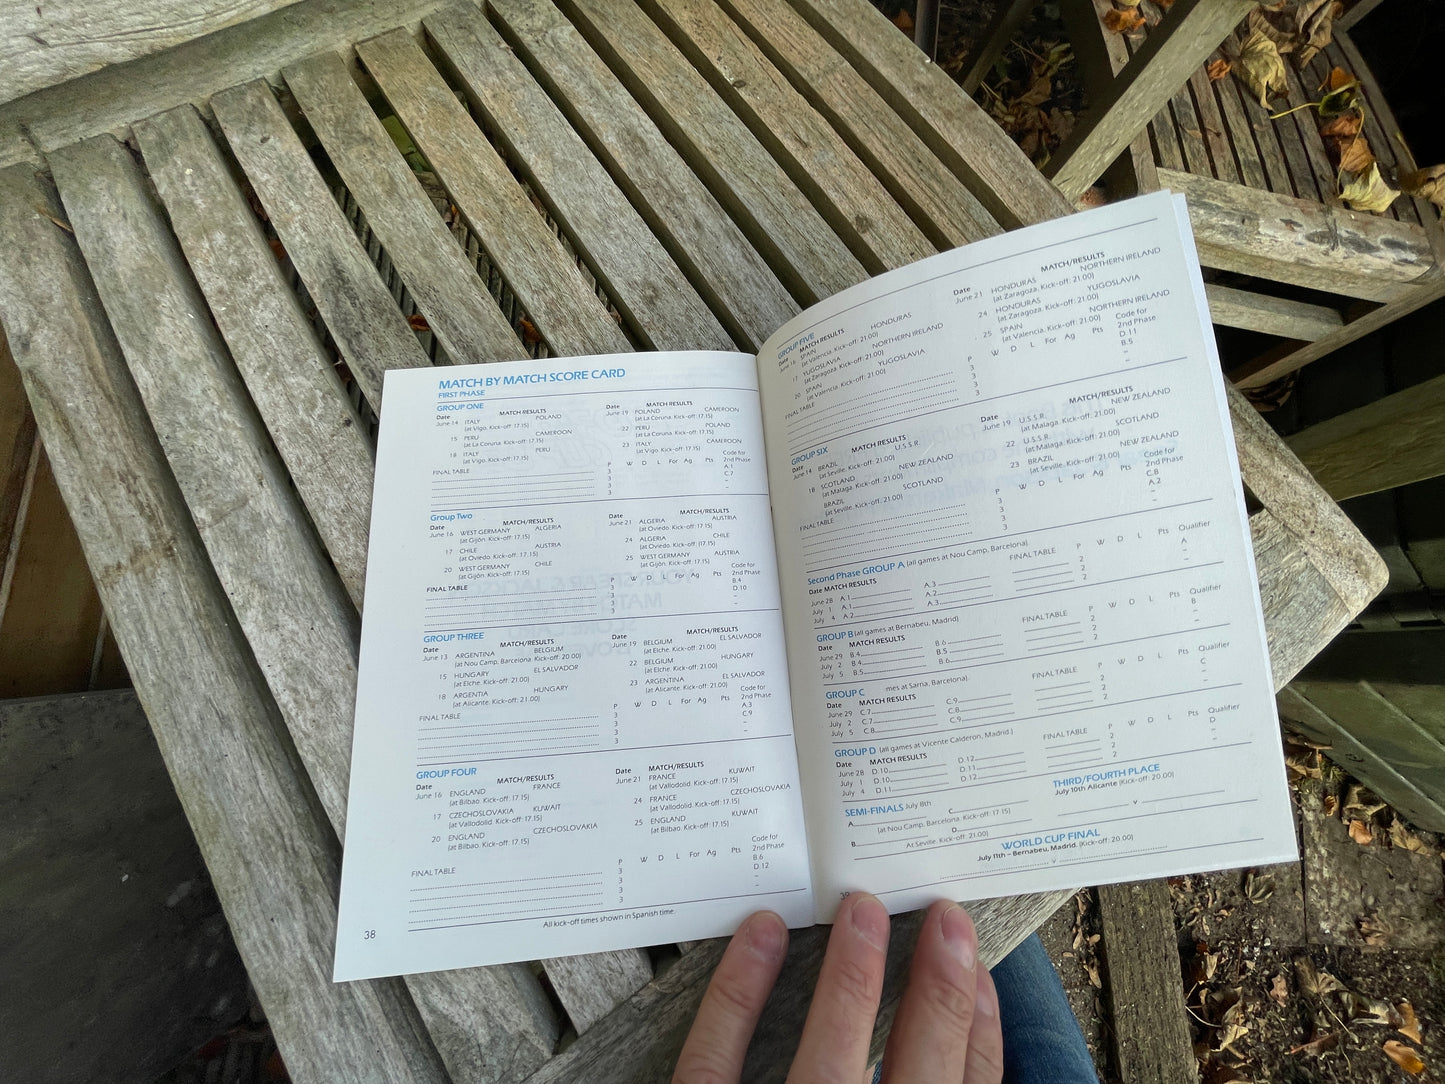 MATCH BY MATCH SCORE CARD
FIRST PHASE
GROUP ONE
Date MATCH RESULTS
June 14 ITALY POLAND
(at Vigo. Kick-off: 17.15)
15 PERU CAMEROON
(at La Coruna. Kick-off: 17.15)
18 ITALY PERU
(at Vigo. Kick-off: 17.15)
Date MATCH RESULTS
June 19 POLAND CAMEROON
(at La Coruna. Kick-off: 17.15)
22 PERU POLAND
(at La Coruna. Kick-off: 17.15)
23 ITALY CAMEROON
(at Vigo. Kick-off: 17.15)
Code for
FINAL TABLE P W D L For Ag Pts 2nd Phase
3 A.1
3 C.7
3 –
3 –
Group Two
Date MATCH/RESULTS
June 16 WEST GERMANY ALGERIA
(at Gijón. Kick-off: 17.15)
17 CHILE AUSTRIA
(at Oviedo. Kick-off: 17.15)
20 WEST GERMANY CHILE
(at Gijón. Kick-off: 17.15)
Date MATCH/RESULTS
June 21 ALGERIA AUSTRIA
(at Oviedo. Kick-off: 17.15)
24 ALGERIA CHILE
(at Oviedo. Kick-off: 17.15)
25 WEST GERMANY AUSTRIA
(at Gijón. Kick-off: 17.15)
Code for
FINAL TABLE P W D L For Ag Pts 2nd Phase
3 B.4
3 D.10
3 –
3 –
GROUP THREE
Date MATCH/RESULTS
June 13 ARGENTINA BELGIUM
(at Nou Camp, Barcelona. Kick-off: 20.00)
15 HUNGARY EL SALVADOR
(at Elche. Kick-off: 21.00)
18 ARGENTIA HUNGARY
(at Alicante. Kick-off: 21.00)
Date MATCH/RESULTS
June 19 BELGIUM EL SALVADOR
(at Elche. Kick-off: 21.00)
22 BELGIUM HUNGARY
(at Elche. Kick-off: 21.00)
23 ARGENTINA EL SALVADOR
(at Alicante. Kick-off: 21.00)
Code for
FINAL TABLE P W D L For Ag Pts 2nd Phase
3 A.3
3 C.9
3 –
3 –
GROUP FOUR
Date MATCH/RESULTS
June 16 ENGLAND FRANCE
(at Bilbao. Kick-off: 17.15)
17 CZECHOSLOVAKIA KUWAIT
(at Valladolid. Kick-off: 17.15)
20 ENGLAND CZECHOSLOVAKIA
(at Bilbao. Kick-off: 17.15)
Date MATCH/RESULTS
June 21 FRANCE KUWAIT
(at Valladolid. Kick-off: 17.15)
24 FRANCE CZECHOSLOVAKIA
(at Valladolid. Kick-off: 17.15)
25 ENGLAND KUWAIT
(at Bilbao. Kick-off: 17.15)
Code for
FINAL TABLE P W D L For Ag Pts 2nd Phase
3 B.6
3 D.12
3 –
3 –
All kick-off times shown in Spanish time.
38
GROUP FIVE
Date MATCH RESULTS
June 16 SPAIN HONDURAS
(at Valencia. Kick-off: 21.00)
17 YUGOSLAVIA NORTHERN IRELAND
(at Zaragoza. Kick-off: 21.00)
20 SPAIN YUGOSLAVIA
(at Valencia. Kick-off: 21.00)
Date MATCH/RESULTS
June 21 HONDURAS NORTHERN IRELAND
(at Zaragoza. Kick-off: 21.00)
24 HONDURAS YUGOSLAVIA
(at Zaragoza. Kick-off: 21.00)
25 SPAIN NORTHERN IRELAND
(at Valencia. Kick-off: 21.00)
Code for
FINAL TABLE P W D L For Ag Pts 2nd Phase
3 D.11
3 B.5
3 –
3 –
GROUP SIX
Date MATCH RESULTS
June 14 BRAZIL U.S.S.R.
(at Seville. Kick-off: 21.00)
18 SCOTLAND NEW ZEALAND
(at Malaga. Kick-off: 21.00)
BRAZIL SCOTLAND
(at Seville. Kick-off: 21.00)
Date MATCH/RESULTS
June 19 U.S.S.R. NEW ZEALAND
(at Malaga. Kick-off: 21.00)
22 U.S.S.R. SCOTLAND
(at Malaga. Kick-off: 21.00)
23 BRAZIL NEW ZEALAND
(at Seville. Kick-off: 21.00)
Code for
FINAL TABLE P W D L For Ag Pts 2nd Phase
3 C.8
3 A.2
3 –
3 –
Second Phase GROUP A (all games at Nou Camp, Barcelona).
Date MATCH RESULTS FINAL TABLE P W D L Pts Qualifier
June 28 A.1 A.3 2 A
July 1 A.1 A.2 2 –
July 4 A.2 A.3 2 –
GROUP B (all games at Bernabeu, Madrid)
Date MATCH RESULTS FINAL TABLE P W D L Pts Qualifier
June 29 B.4 B.6 2 B
July 2 B.4 B.5 2 –
July 5 B.5 B.6 2 –
GROUP C mes at Sarna, Barcelona).
Date MATCH RESULTS FINAL TABLE P W D L Pts Qualifier
June 29 C.7 C.9 2 C
July 2 C.7 C.8 2 –
July 5 C.8 C.9 2 –
GROUP D (all games at Vicente Calderon, Madrid.)
Date MATCH RESULTS FINAL TABLE P W D L Pts Qualifier
June 28 D.10 D.12 2 D
July 1 D.10 D.11 2 –
July 4 D.11 D.12 2 –
SEMI-FINALS July 8th
A C
(at Nou Camp, Barcelona. Kick-off: 17.15)
B D
At Seville. Kick-off: 21.00)
THIRD/FOURTH PLACE
July 10th Alicante (Kick-off: 20.00)
v
WORLD CUP FINAL
July 11th – Bernabeu, Madrid. (Kick-off: 20.00)
v
39